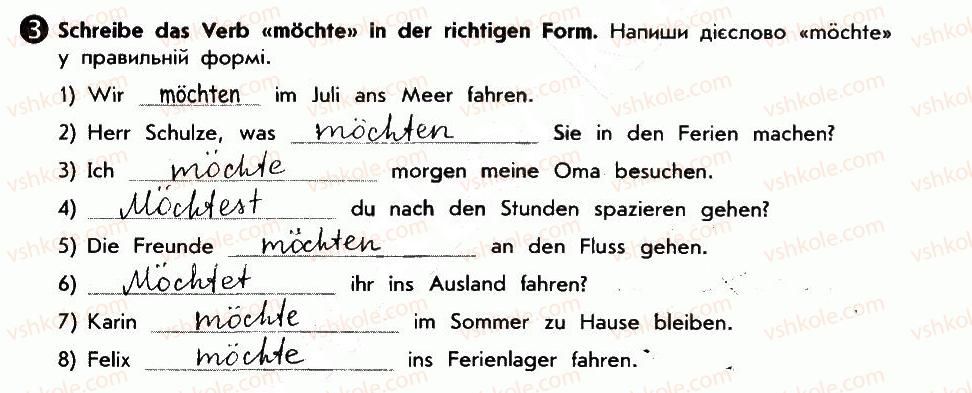 3 Schreibe das Verb «möchte» in der richtigen Form. Напиши дієслово «möchte»
у правильній формі.
1) Wir möchten im Juli ans Meer fahren.
2) Herr Schulze, was möchten Sie in den Ferien machen?
3) Ich möchte morgen meine Oma besuchen.
4) Möchtest du nach den Stunden spazieren gehen?
5) Die Freunde möchten an den Fluss gehen.
6) Möchtet ihr ins Ausland fahren?
7) Karin möchte im Sommer zu Hause bleiben.
8) Felix möchte ins Ferienlager fahren.
vshkole.com